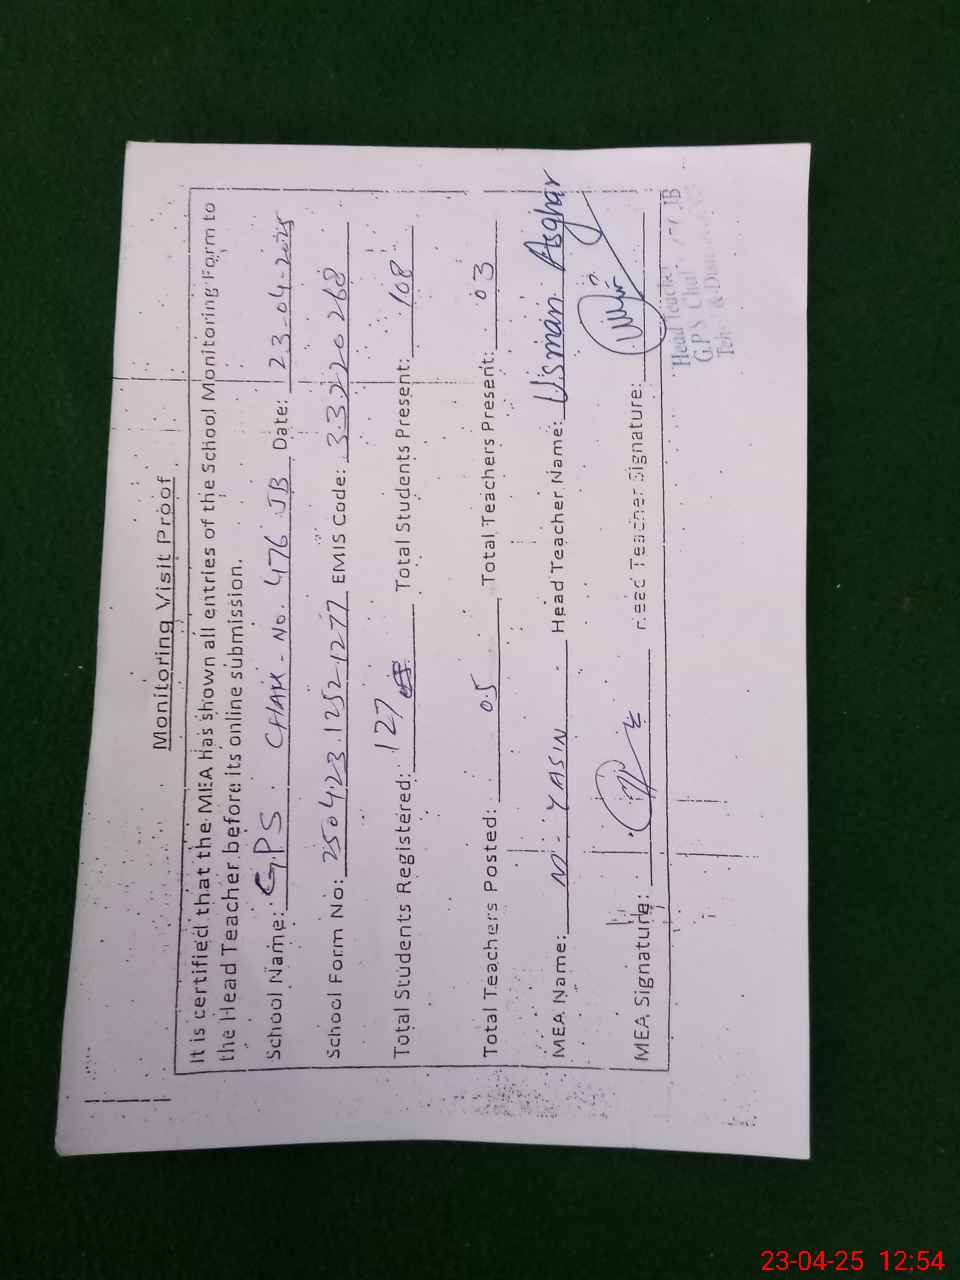 Monitoring Visit Proof
It is certified that the MEA has shown all entries of the School Monitoring Form to
the Head Teacher before its online submission.
School Name: GPS. CHAK-No. 476 JB Date: 23-04-2025
School Form No: 250423.1252-1277 EMIS Code: 33220268
Total Students Registered: 127 Total Students Present: 108
Total Teachers Posted: 05 Total Teachers Present: 03
MEA Name: M-YASIN - Head Teacher Name: Usman Asghar
MEA Signature: Head Teacher Signature:
Head Teacher JB
G.P.S Chak
23-04-25 12:54